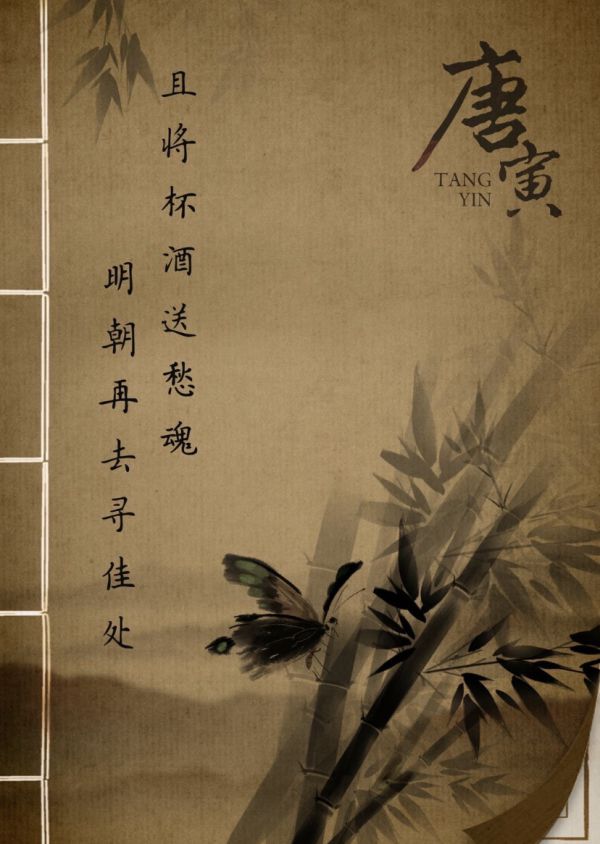 唐寅
TANG
YIN
且将杯酒送愁魂
明朝再去寻佳处